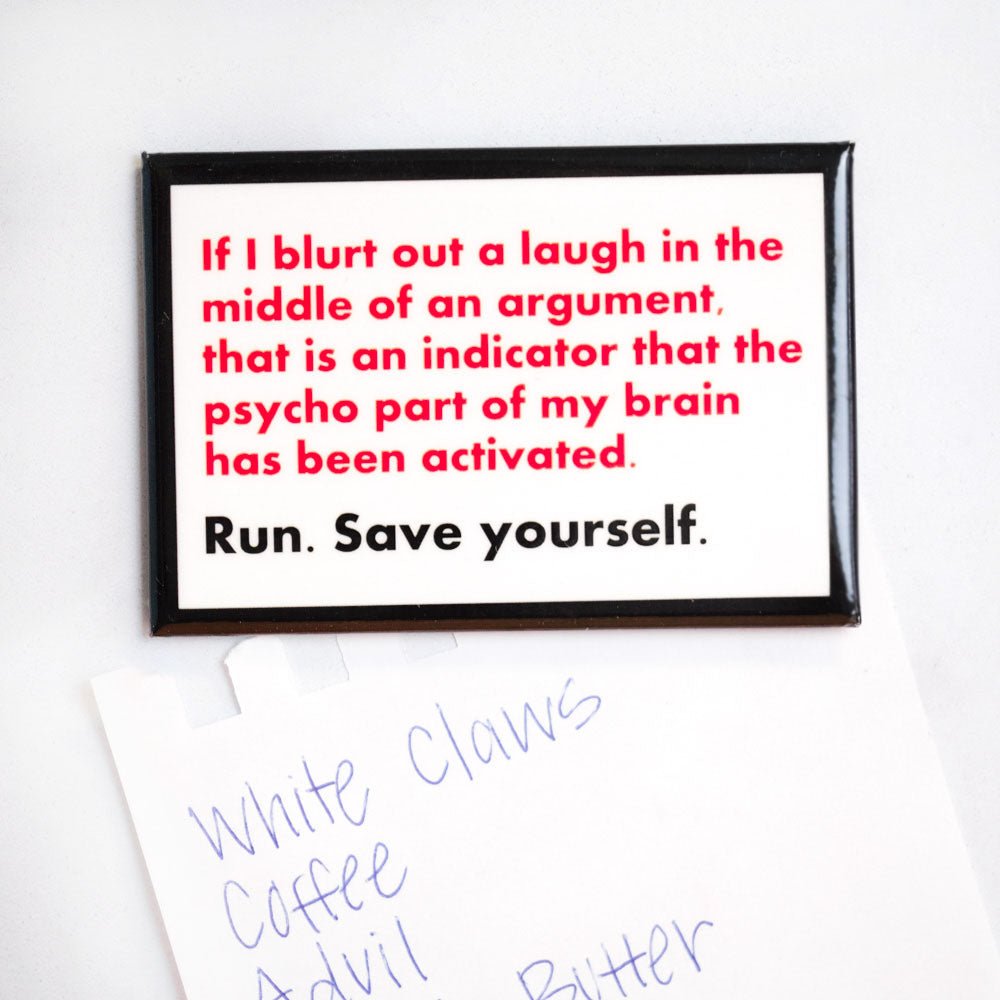 If I blurt out a laugh in the
middle of an argument,
that is an indicator that the
psycho part of my brain
has been activated.
Run. Save yourself.
White Claws
Coffee
Advil
Butter